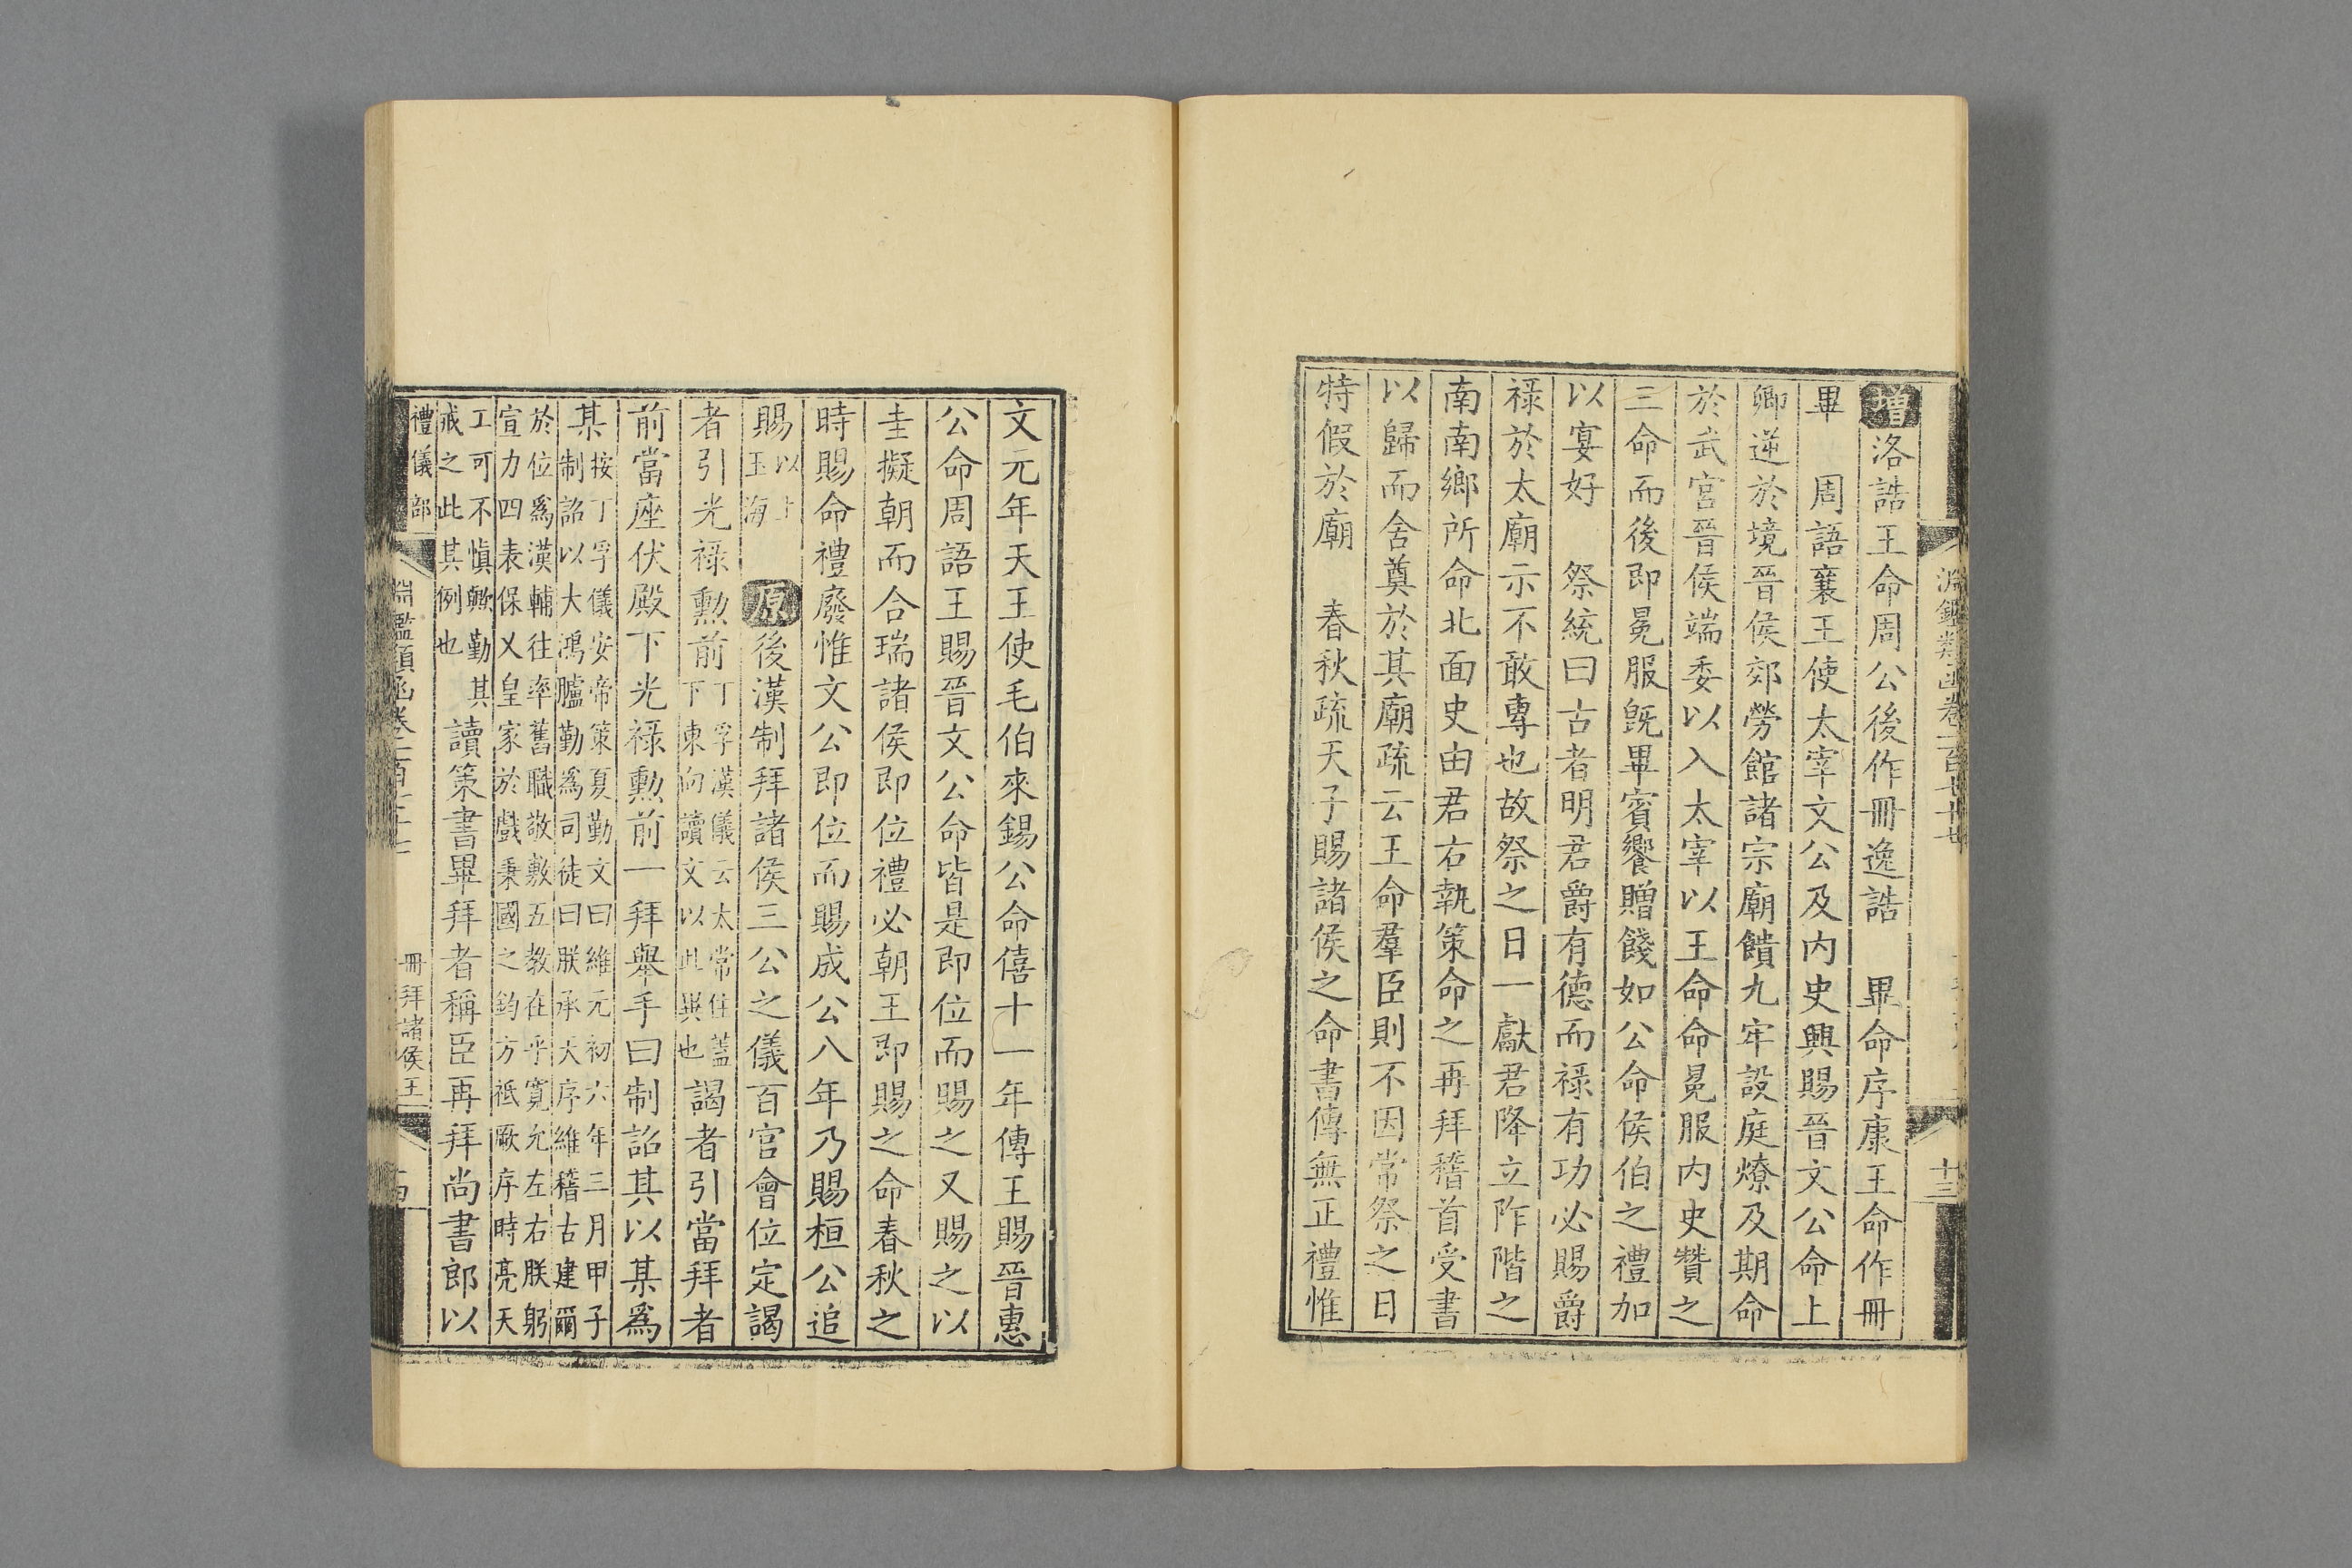 增洛誥王命周公後作冊逸誥　畢命序康王命作冊
畢　周語襄王使太宰文公及內史興賜晉文公命上
卿逆於境晉侯郊勞館諸宗廟饋九牢設庭燎及期命
於武宮晉侯端委以入太宰以王命命冕服內史贊之
三命而後即冕服既畢賓饗贈餞如公命侯伯之禮加
以宴好　祭統曰古者明君爵有德而祿有功必賜爵
祿於太廟示不敢專也故祭之日一獻君降立阼階之
南南鄉所命北面史由君右執策命之再拜稽首受書
以歸而舍奠於其廟疏云王命羣臣則不因常祭之日
特假於廟　春秋疏天子賜諸侯之命書傳無正禮惟
文元年天王使毛伯來錫公命僖十一年傳王賜晉惠
公命周語王賜晉文公命皆是即位而賜之又賜之以
圭擬朝而合瑞諸侯即位禮必朝王即賜之命春秋之
時賜命禮廢惟文公即位而賜成公八年乃賜桓公追
賜以上玉海原後漢制拜諸侯三公之儀百官會位定謁
者引光祿勳前丁孚漢儀云太常住蓋下東向讀文以此異也謁者引當拜者
前當座伏殿下光祿勳前一拜舉手曰制詔其以某為
某按丁孚儀安帝策夏勤文曰維元初六年三月甲子制詔以大鴻臚勤為司徒曰朕承天序維稽古建爾
於位為漢輔往率舊職敬敷五教在乎寬允左右朕躬宣力四表保乂皇家於戲秉國之鈞方祗厥序時亮天
工可不慎歟勤其戒之此其例也讀策書畢拜者稱臣再拜尚書郎以
禮儀部　淵鑑類函卷一百七十七　冊拜諸侯王　十四